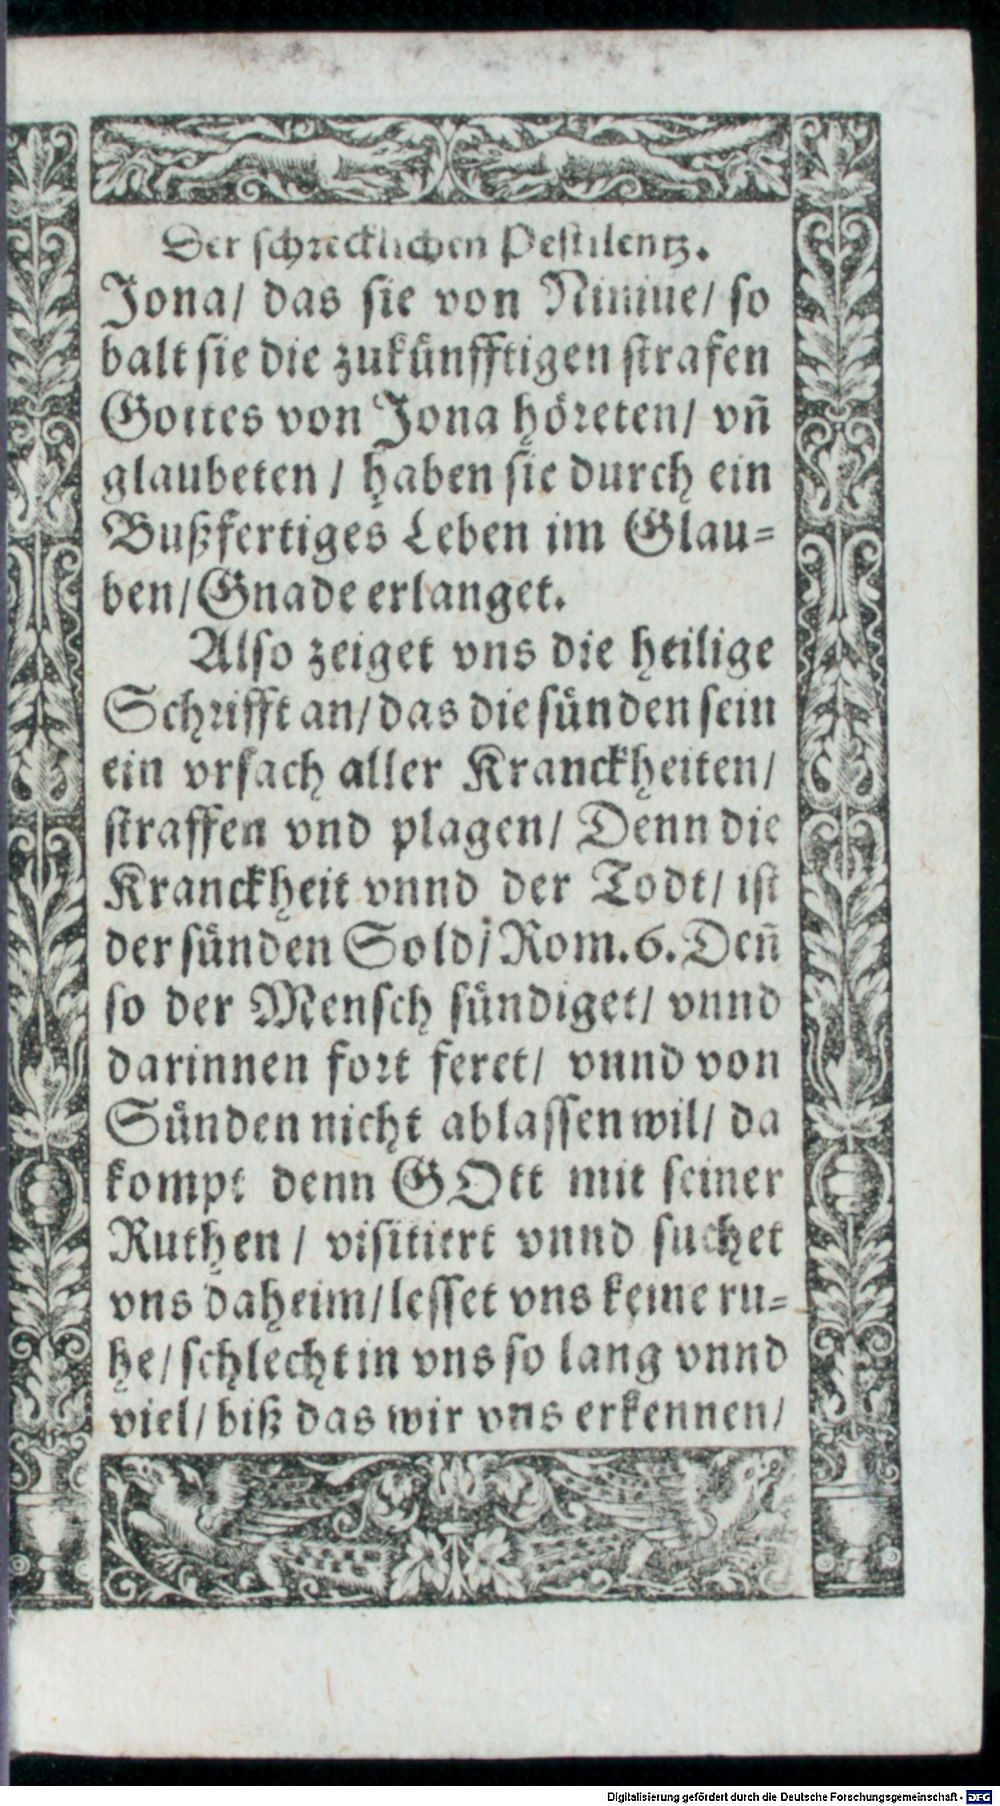 Der schrecklichen Pestilentz.
Jona/ das sie von Niniue/ so
balt sie die zukünfftigen strafen
Gottes von Jona höreten/ vñ
glaubeten / haben sie durch ein
Bußfertiges Leben im Glau-
ben/ Gnade erlanget.
Also zeiget vns die heilige
Schrifft an/ das die sünden sein
ein vrsach aller Kranckheiten/
straffen vnd plagen/ Denn die
Kranckheit vnnd der Todt/ ist
der sünden Sold/ Rom. 6. Deñ
so der Mensch sündiget/ vnnd
darinnen fort feret/ vnnd von
Sünden nicht ablassen wil/ da
kompt denn GOtt mit seiner
Ruthen / visitiert vnnd suchet
vns daheim/ lesset vns keine ru-
he/ schlecht in vns so lang vnnd
viel/ biß das wir vns erkennen/
Digitalisierung gefördert durch die Deutsche Forschungsgemeinschaft - DFG